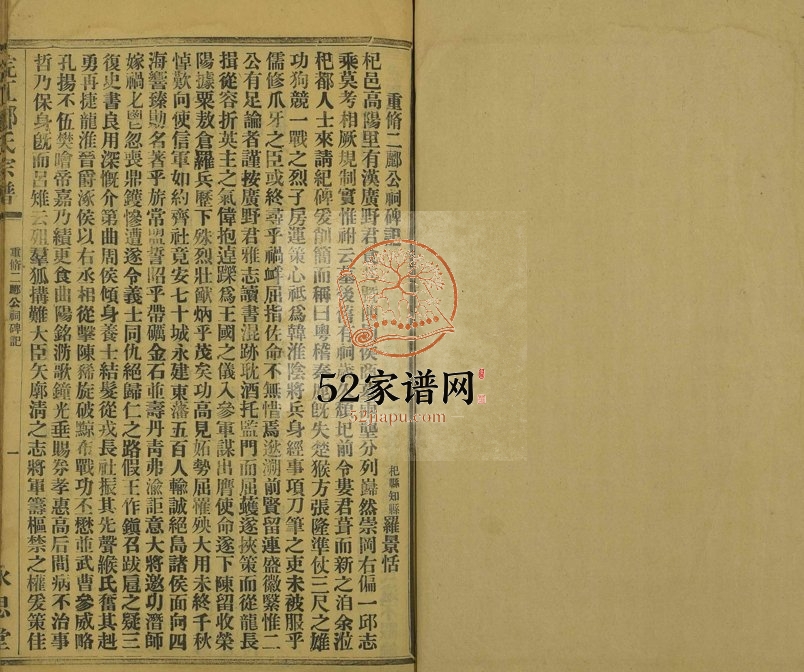 重脩二酈公祠碑記
杞縣知縣羅景恬
杞邑高陽里有漢廣野君食其曲周侯商 分列巋然崇岡右偏一邱志
乘莫考相厥規制實惟祔云墓後舊有祠歲久傾圮前令婁君葺而新之洎余涖
杞都人士來請紀碑爰削簡而稱曰粵稽秦鹿旣失楚猴方張隆準仗三尺之雄
功狗競一戰之烈子房運策心祇爲韓淮陰將兵身經事項刀筆之吏未被服乎
儒修爪牙之臣或終尋乎禍衅屈指佐命不無惜焉遐溯前賢留連盛徽繄惟二
公有足論者謹按廣野君雅志讀書混跡耽酒托監門而屈蠖遂挾策而從龍長
揖從容折英主之氣偉抱逴躒爲王國之儀入參軍謀出膺使命遂下陳留收滎
陽據粟敖倉羅兵歷下殊烈壯猷炳乎茂矣功高見妬勢屈罹殃大用未終千秋
悼歎向使信軍如約齊社竟安七十城永建東藩五百人輸誠絕島諸侯面向四
海響臻勛名著乎旂常盟誓昭乎帶礪金石並壽丹靑弗渝詎意大將邀功潛師
嫁禍之鬯忽喪鼎鑊慘遭遂令義士同仇絕歸仁之路假王作鎭召跋扈之疑三
復史書良用深慨介第曲周侯傾身養士結髮從戎長社振其先聲緱氏奮其赳
勇再捷龍淮晉爵涿侯以右丞相從擊陳豨旋破黥布戰功丕懋並武曹參威略
孔揚不伍樊噲帝嘉乃績更食曲陽銘泐歌鐘光垂賜券孝惠高后間病不治事
哲乃保身旣而呂雉云殂羣狐搆難大臣矢廓淸之志將軍籌樞禁之權爰策佳
酈氏宗譜
重脩二酈公祠碑記
一
永思堂
52家谱网
52jiapu.com